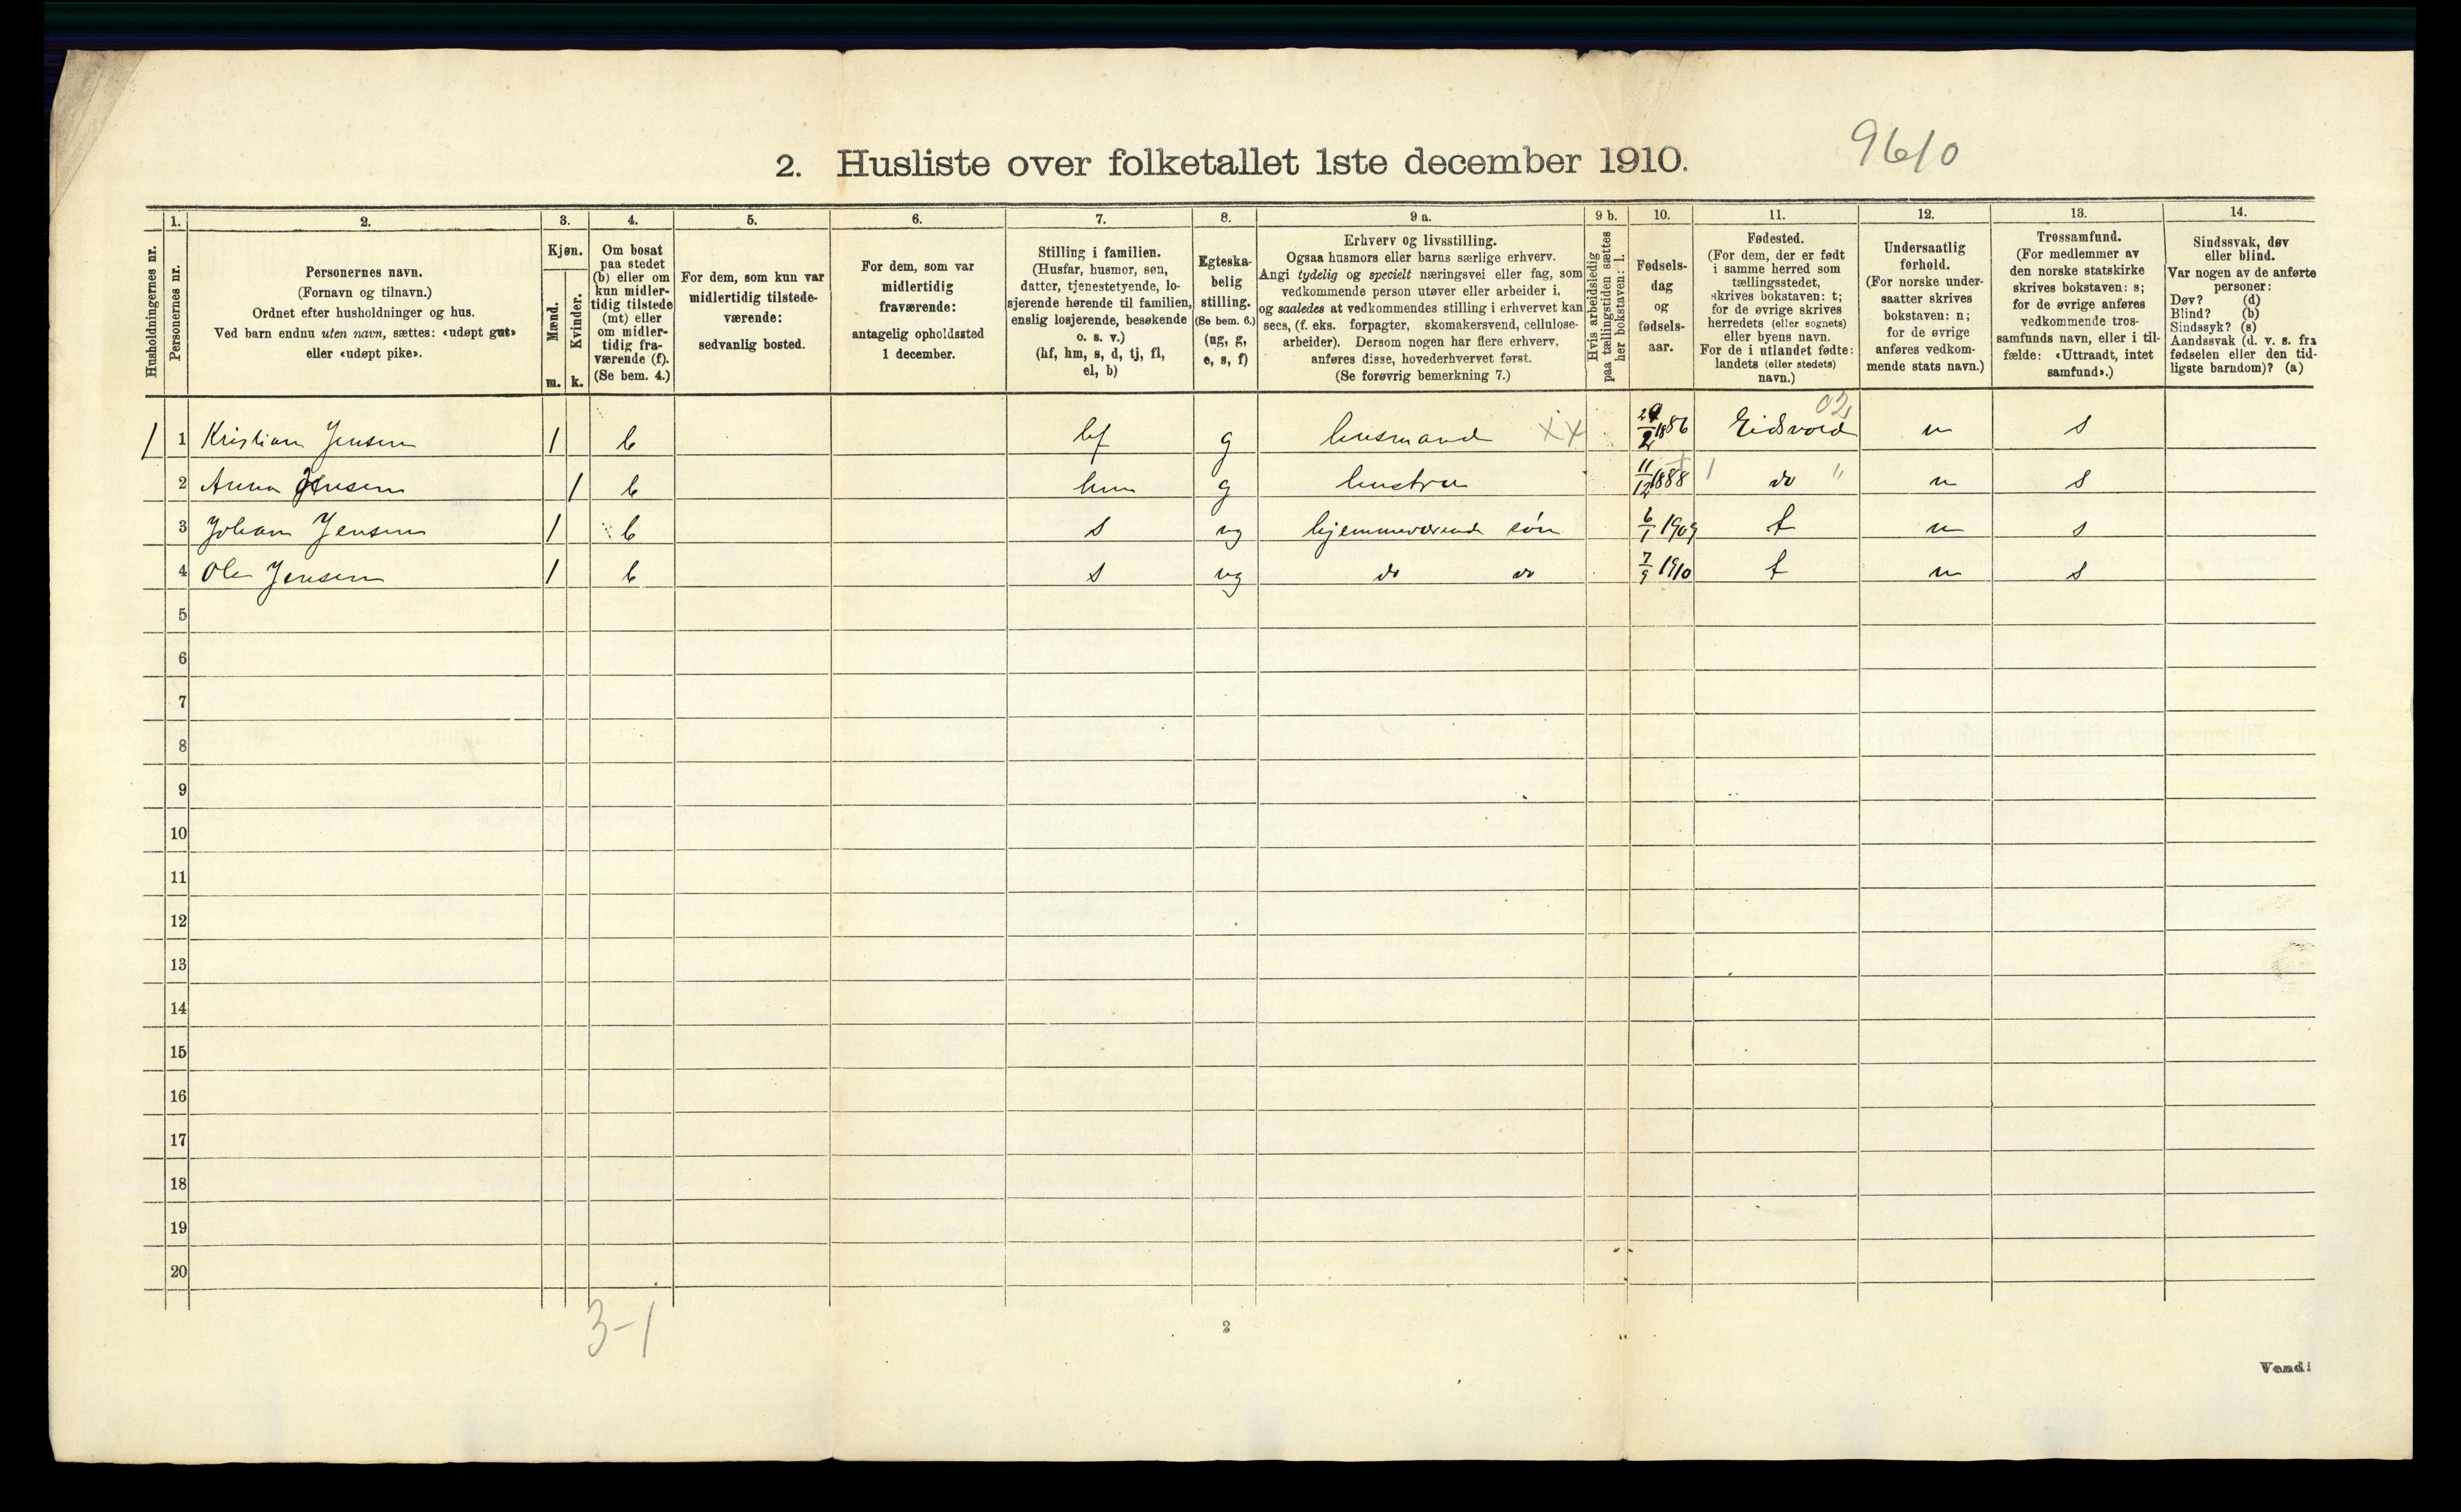 2. Husliste over folketallet 1ste december 1910.
9610
1.
2.
3.
4.
5.
6.
7.
8.
9 a.
9 b.
10.
11.
12.
13.
14.
Husholdningernes nr.
Personernes nr.
Personernes navn.
(Fornavn og tilnavn.)
Ordnet efter husholdninger og hus.
Ved barn endnu uten navn, sættes: «udøpt gut»
eller «udøpt pike».
Kjøn.
Mænd.
Kvinder.
m. k.
Om bosat
paa stedet
(b) eller om
kun midler-
tidig tilstede
(mt) eller
om midler-
tidig fra-
værende (f).
(Se bem. 4.)
For dem, som kun var
midlertidig tilstede-
værende:
sedvanlig bosted.
For dem, som var
midlertidig
fraværende:
antagelig opholdssted
1 december.
Stilling i familien.
(Husfar, husmor, søn,
datter, tjenestetyende, lo-
sjerende hørende til familien,
enslig losjerende, besøkende
o. s. v.)
(hf, hm, s, d, tj, fl,
el, b)
Egteska-
belig
stilling.
(Se bem. 6.)
(ug, g,
e, s, f)
Erhverv og livsstilling.
Ogsaa husmors eller barns særlige erhverv.
Angi tydelig og specielt næringsvei eller fag, som
vedkommende person utøver eller arbeider i,
og saaledes at vedkommendes stilling i erhvervet kan
sees, (f. eks. forpagter, skomakersvend, cellulose-
arbeider). Dersom nogen har flere erhverv,
anføres disse, hovederhvervet først.
(Se forøvrig bemerkning 7.)
Hvis arbeidsledig
paa tællingstiden sættes
her bokstaven: l.
Fødsels-
dag
og
fødsels-
aar.
Fødested.
(For dem, der er født
i samme herred som
tællingsstedet,
skrives bokstaven: t;
for de øvrige skrives
herredets (eller sognets)
eller byens navn.
For de i utlandet fødte:
landets (eller stedets)
navn.)
Undersaatlig
forhold.
(For norske under-
saatter skrives
bokstaven: n;
for de øvrige
anføres vedkom-
mende stats navn.)
Trossamfund.
(For medlemmer av
den norske statskirke
skrives bokstaven: s;
for de øvrige anføres
vedkommende tros-
samfunds navn, eller i til-
fælde: «Uttraadt, intet
samfund».)
Sindssvak, døv
eller blind.
Var nogen av de anførte
personer:
Døv? (d)
Blind? (b)
Sindssyk? (s)
Aandssvak (d. v. s. fra
fødselen eller den tid-
ligste barndom)? (a)
02
1 1 Kristian Jensen 1 b hf g husmand xx /2 1886 Eidsvold n s
2 Anna Jensen 1 b hm g hustru 11/12 1888 1 do " n s
3 Johan Jensen 1 b s ug hjemmeværende søn 6/1 1909 t n s
4 Ole Jensen 1 b s ug do do 7/9 1910 t n s
5
6
7
8
9
10
11
12
13
14
15
16
17
18
19
20
3-1
2
Vend!